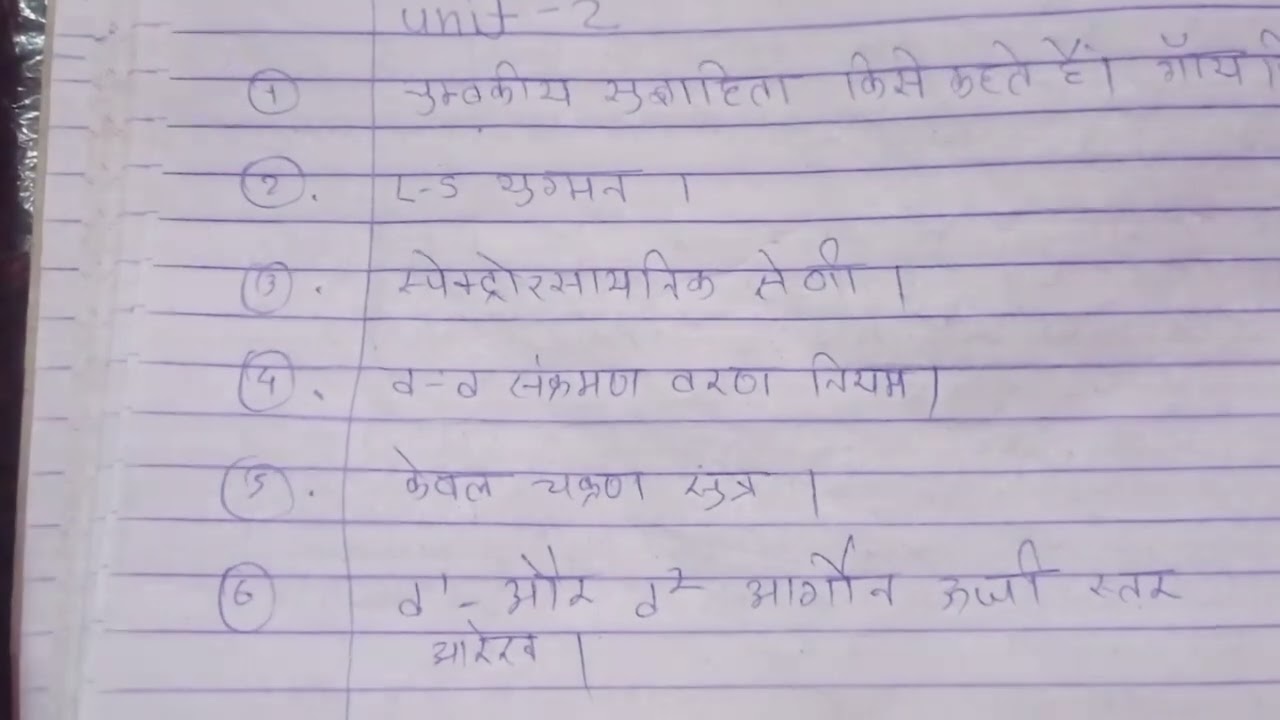 unit-2
① चुम्बकीय सुग्राहिता किसे कहते हैं। गॉय
②. L-S युग्मन ।
③. स्पेक्ट्रोरसायनिक सेणी ।
④. d-d संक्रमण वरण नियम।
⑤. केवल चक्रण सुत्र ।
⑥ d¹- और d² आर्गौन ऊर्जा स्तर
आरेख ।